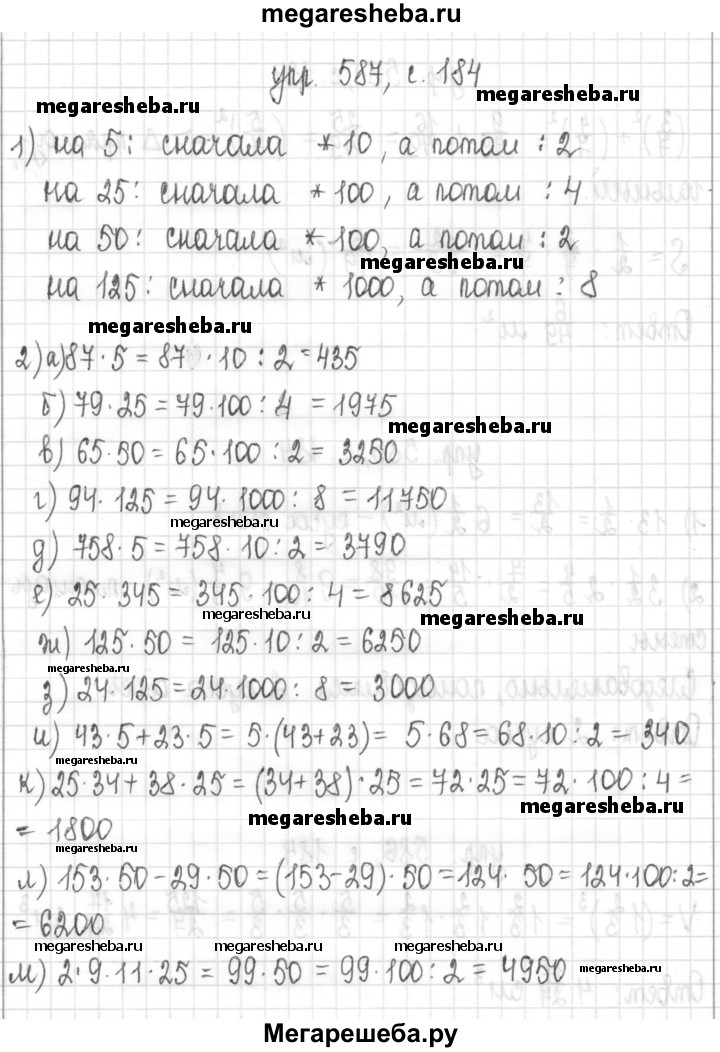 megaresheba.ru
упр. 587, с. 184
megaresheba.ru megaresheba.ru
1) на 5: сначала * 10, а потом : 2
на 25: сначала * 100, а потом : 4
на 50: сначала * 100, а потом : 2
megaresheba.ru
на 125: сначала * 1000, а потом : 8
megaresheba.ru
2) а) 87·5 = 87·10 : 2 = 435
б) 79·25 = 79·100 : 4 = 1975
megaresheba.ru
в) 65·50 = 65·100 : 2 = 3250
г) 94·125 = 94·1000 : 8 = 11750
megaresheba.ru
д) 758·5 = 758·10 : 2 = 3790
е) 25·345 = 345·100 : 4 = 8625
megaresheba.ru megaresheba.ru
ж) 125·50 = 125·10 : 2 = 6250
megaresheba.ru
з) 24·125 = 24·1000 : 8 = 3000
и) 43·5+23·5 = 5·(43+23) = 5·68 = 68·10 : 2 = 340
megaresheba.ru
к) 25·34 + 38·25 = (34+38)·25 = 72·25 = 72·100 : 4 =
megaresheba.ru
= 1800
megaresheba.ru
megaresheba.ru
л) 153·50 - 29·50 = (153-29)·50 = 124·50 = 124·100 : 2 =
= 6200
megaresheba.ru megaresheba.ru megaresheba.ru megaresheba.ru
м) 2·9·11·25 = 99·50 = 99·100 : 2 = 4950
megaresheba.ru
Мегарешеба.ру